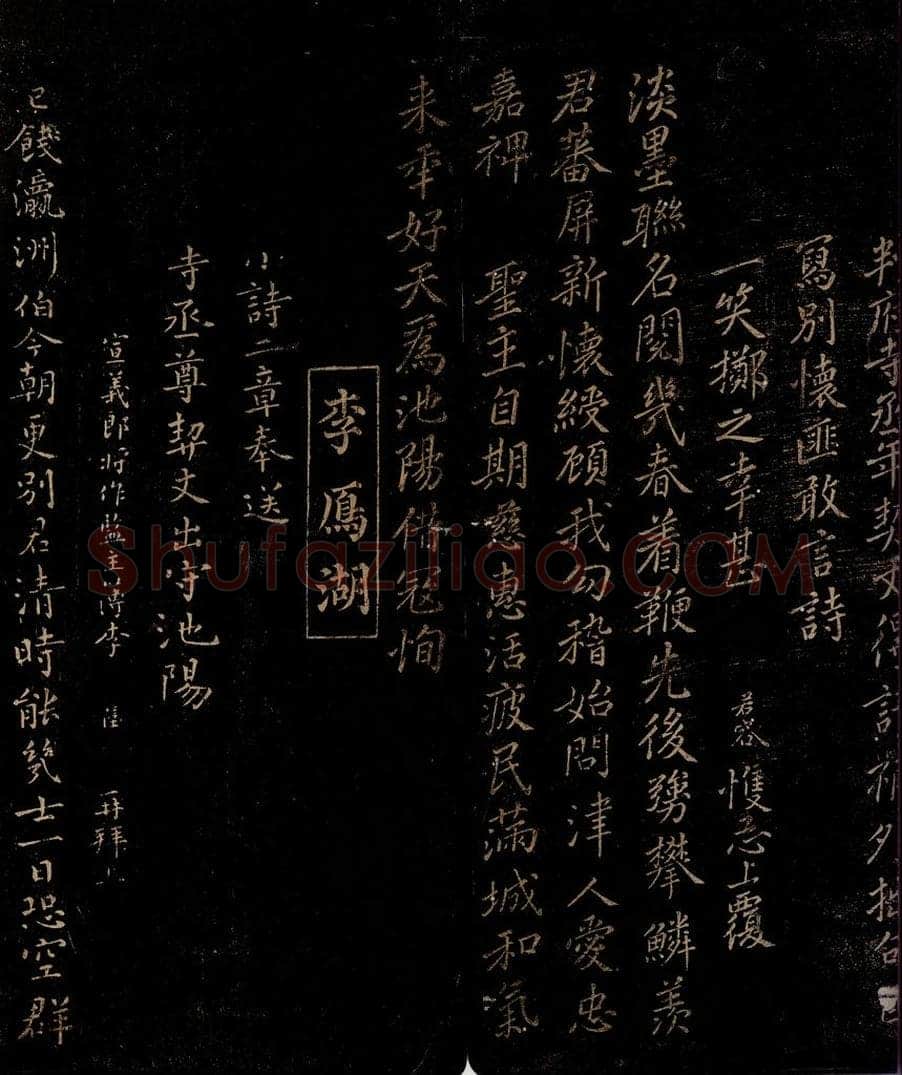 判府寺丞年契丈得請補外指
寫別懷匪敢言詩
一笑擲之幸甚 若容惶恐上覆
淡墨聯名閱幾春着鞭先後勇攀鱗羨
君蕃屏新懷綬顧我勾稽始問津人愛忠
嘉裨 聖主自期慈惠活疲民滿城和氣
来年好天爲池陽借冦恂
李鴈湖
小詩二章奉送
寺丞尊契丈出守池陽
宣義郎將作監主簿李 再拜上
已餞瀛洲伯今朝更別君清時能幾士一日恐空群
Shufaziliao.COM